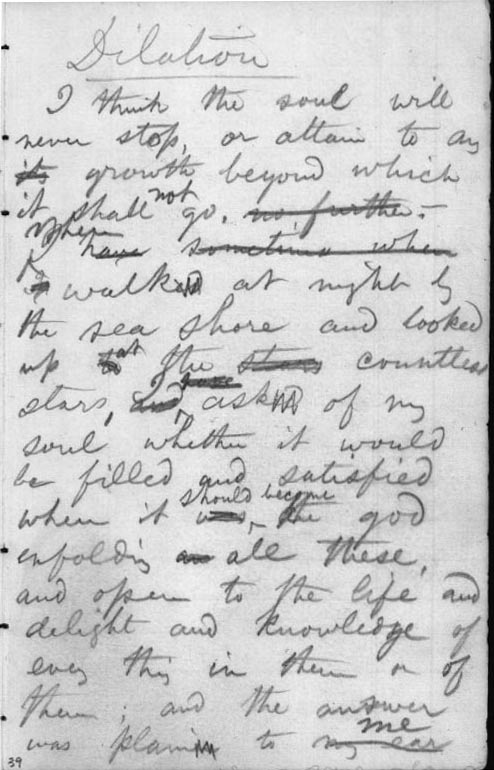 Dilation
I think the soul will
never stop, or attain to any
its growth beyond which
it shall not go, no further. —
When
I have sometimes when
I walked at night by
the sea shore and looked
up at the stars countless
stars, and, I have asked of my
soul whether it would
be filled and satisfied
when it was should become the god
enfolding all these,
and open to the life and
delight and knowledge of
every thing in them or of
them; and the answer
was plain to my ear me
39